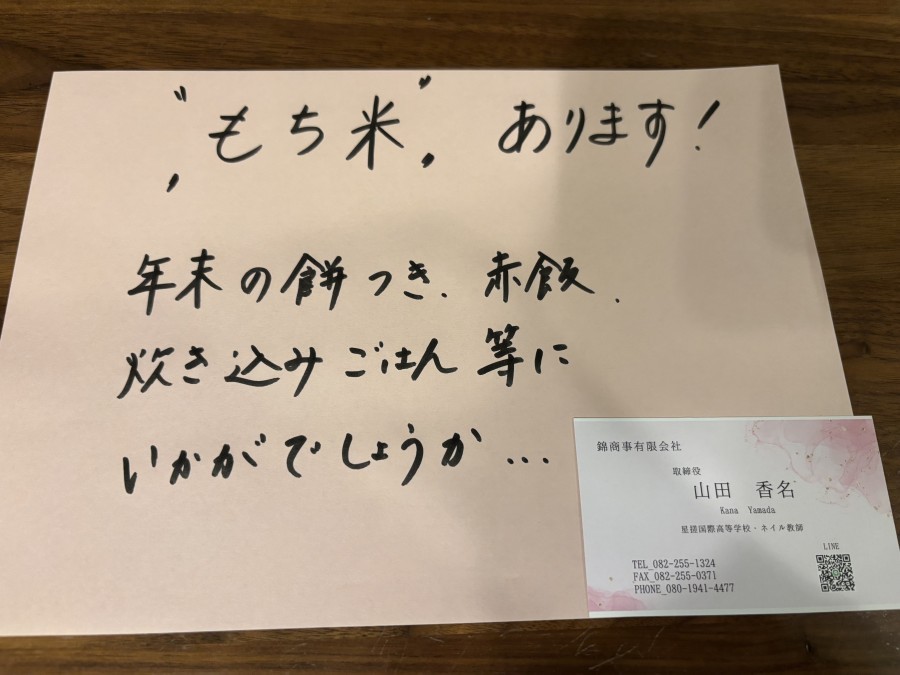 "もち米" あります!
年末の餅つき、赤飯、
炊き込みごはん等に
いかがでしょうか…
錦商事有限会社
取締役
山田 香名
Kana Yamada
星槎国際高等学校・ネイル教師
LINE
TEL_082-255-1324
FAX_082-255-0371
PHONE_080-1941-4477